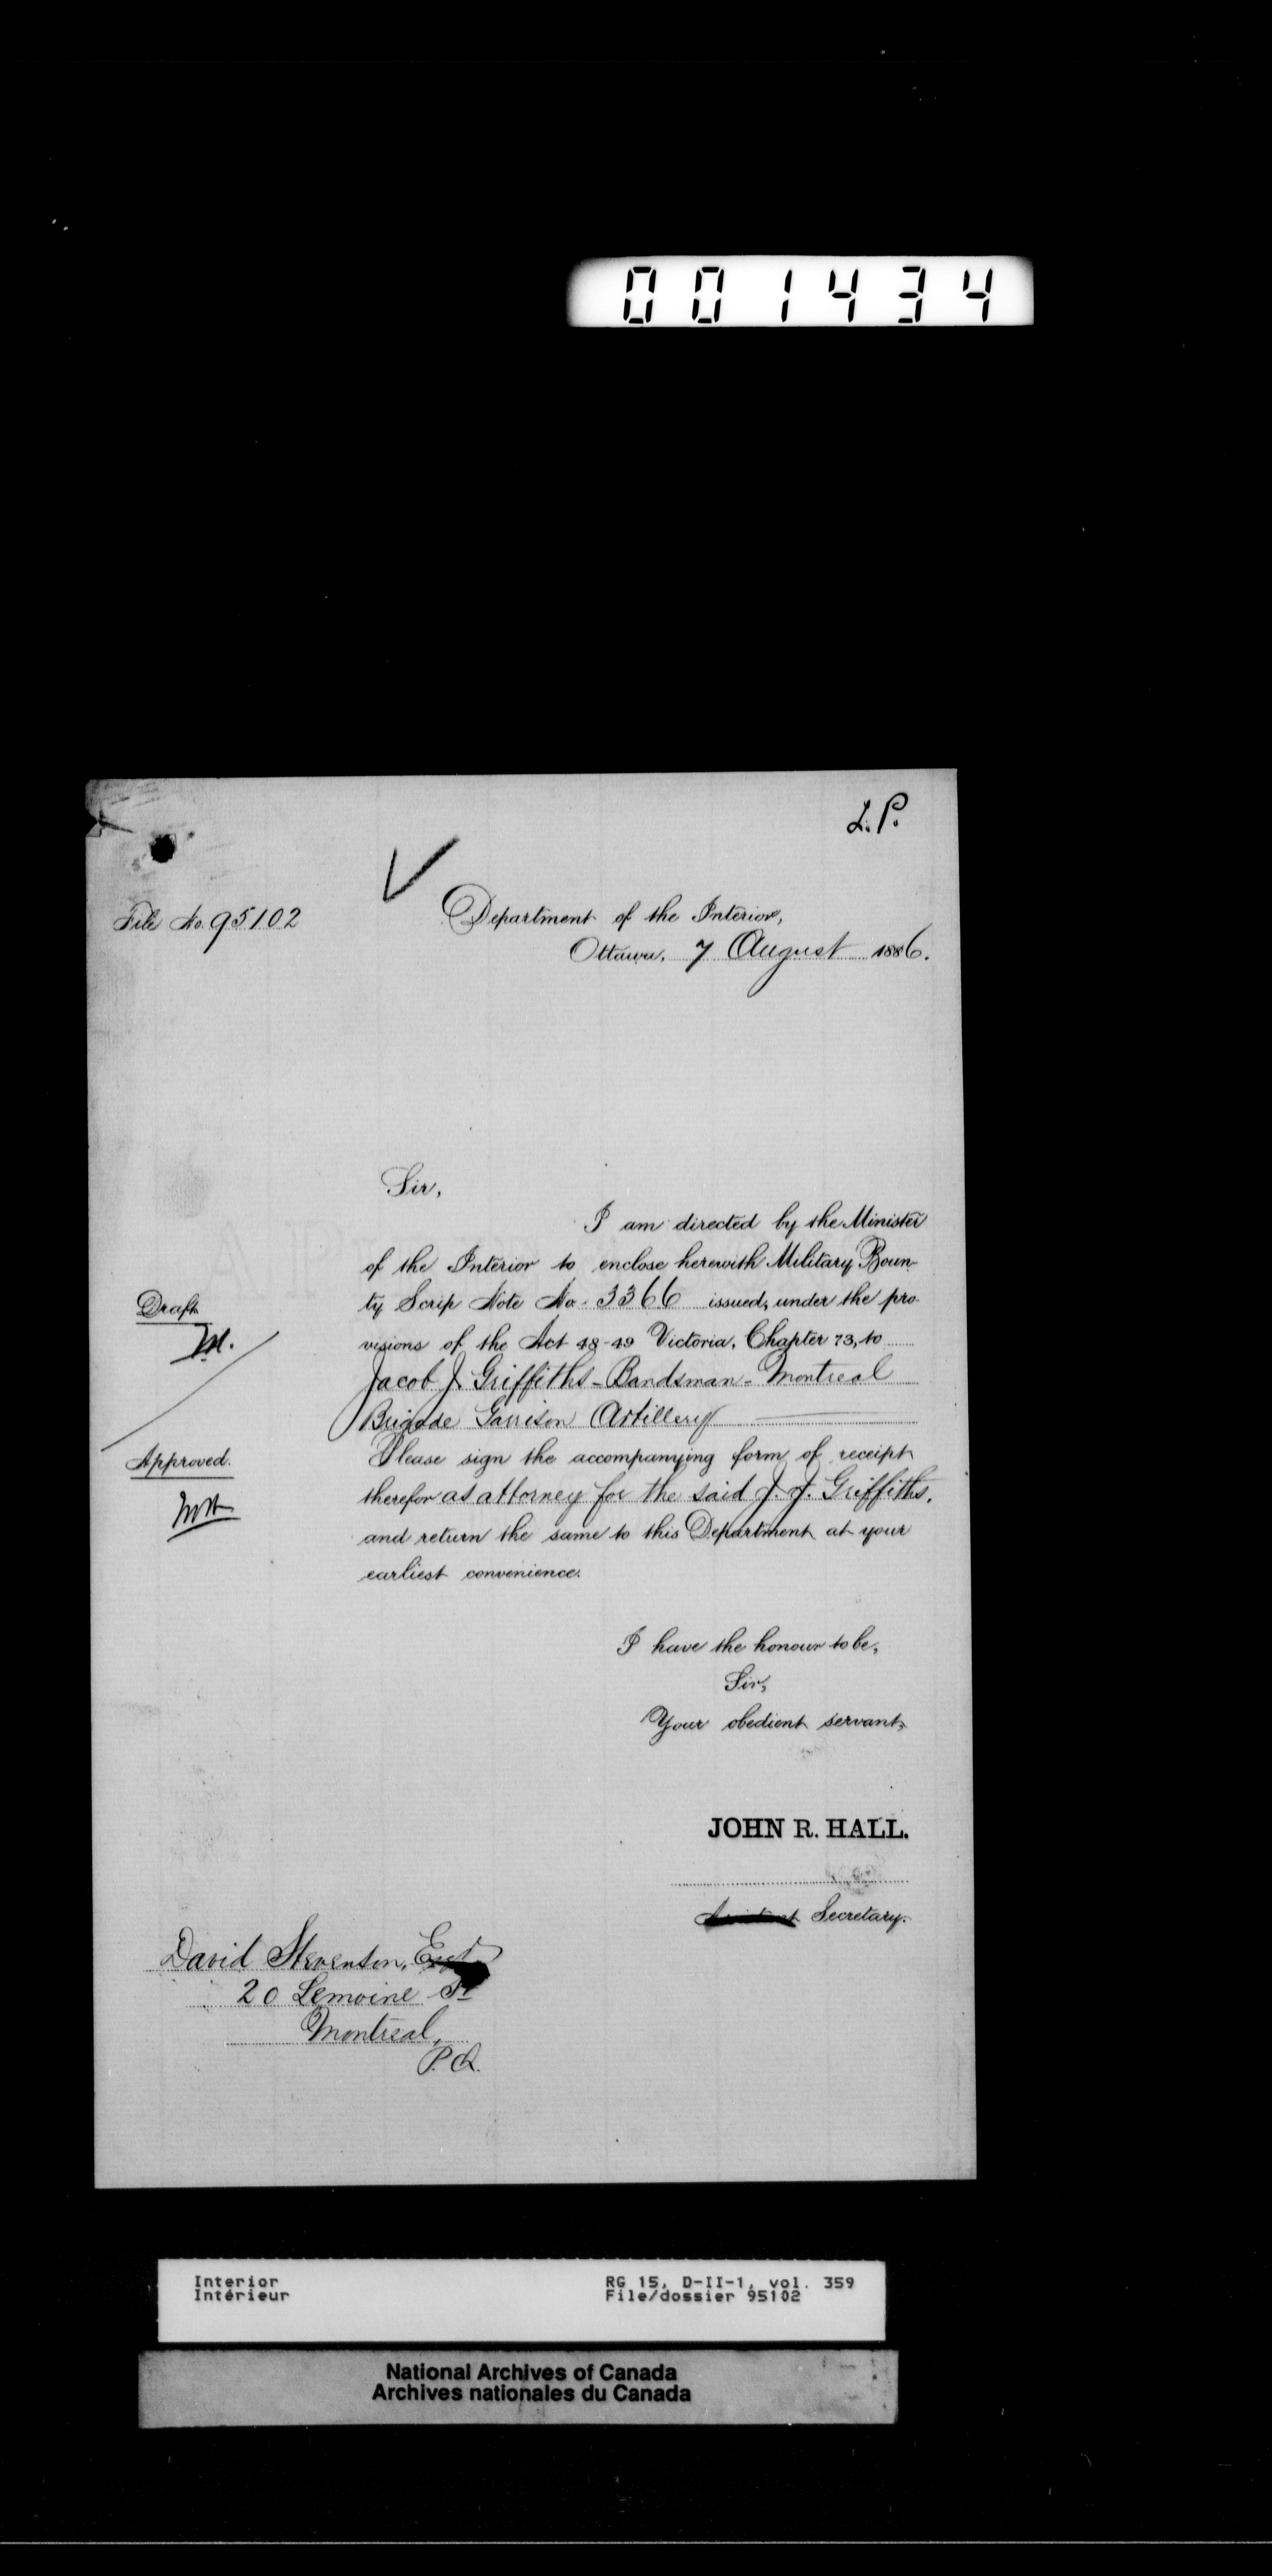 001434
L. P.
File No. 95102
Department of the Interior,
Ottawa, 7 August 1886.
Sir,
I am directed by the Minister
of the Interior to enclose herewith Military Boun-
ty Scrip Note No. 3366 issued, under the pro-
visions of the Act 48-49 Victoria, Chapter 73, to
Jacob J. Griffiths - Bandsman - Montreal
Brigade Garrison Artillery
Please sign the accompanying form of receipt
therefor as attorney for the said J. J. Griffiths.
and return the same to this Department at your
earliest convenience.
Draft
M.
Approved.
I have the honour to be,
Sir,
Your obedient servant,
JOHN R. HALL.
Secretary.
David Stevenson, Esq
20 Lemoine St
Montreal,
P.Q.
Interior
Intérieur
RG 15, D-II-1, vol. 359
File/dossier 95102
National Archives of Canada
Archives nationales du Canada